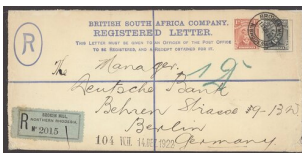 BRITISH SOUTH AFRICA COMPANY.
REGISTERED LETTER.
THIS LETTER MUST BE GIVEN TO AN OFFICER OF THE POST OFFICE
TO BE REGISTERED, AND A RECEIPT OBTAINED FOR IT.
R
The Manager.
Deutsche Bank
Behren Strasse 9-13
Berlin
Germany
BROKEN HILL
NORTHERN RHODESIA.
R No 2015